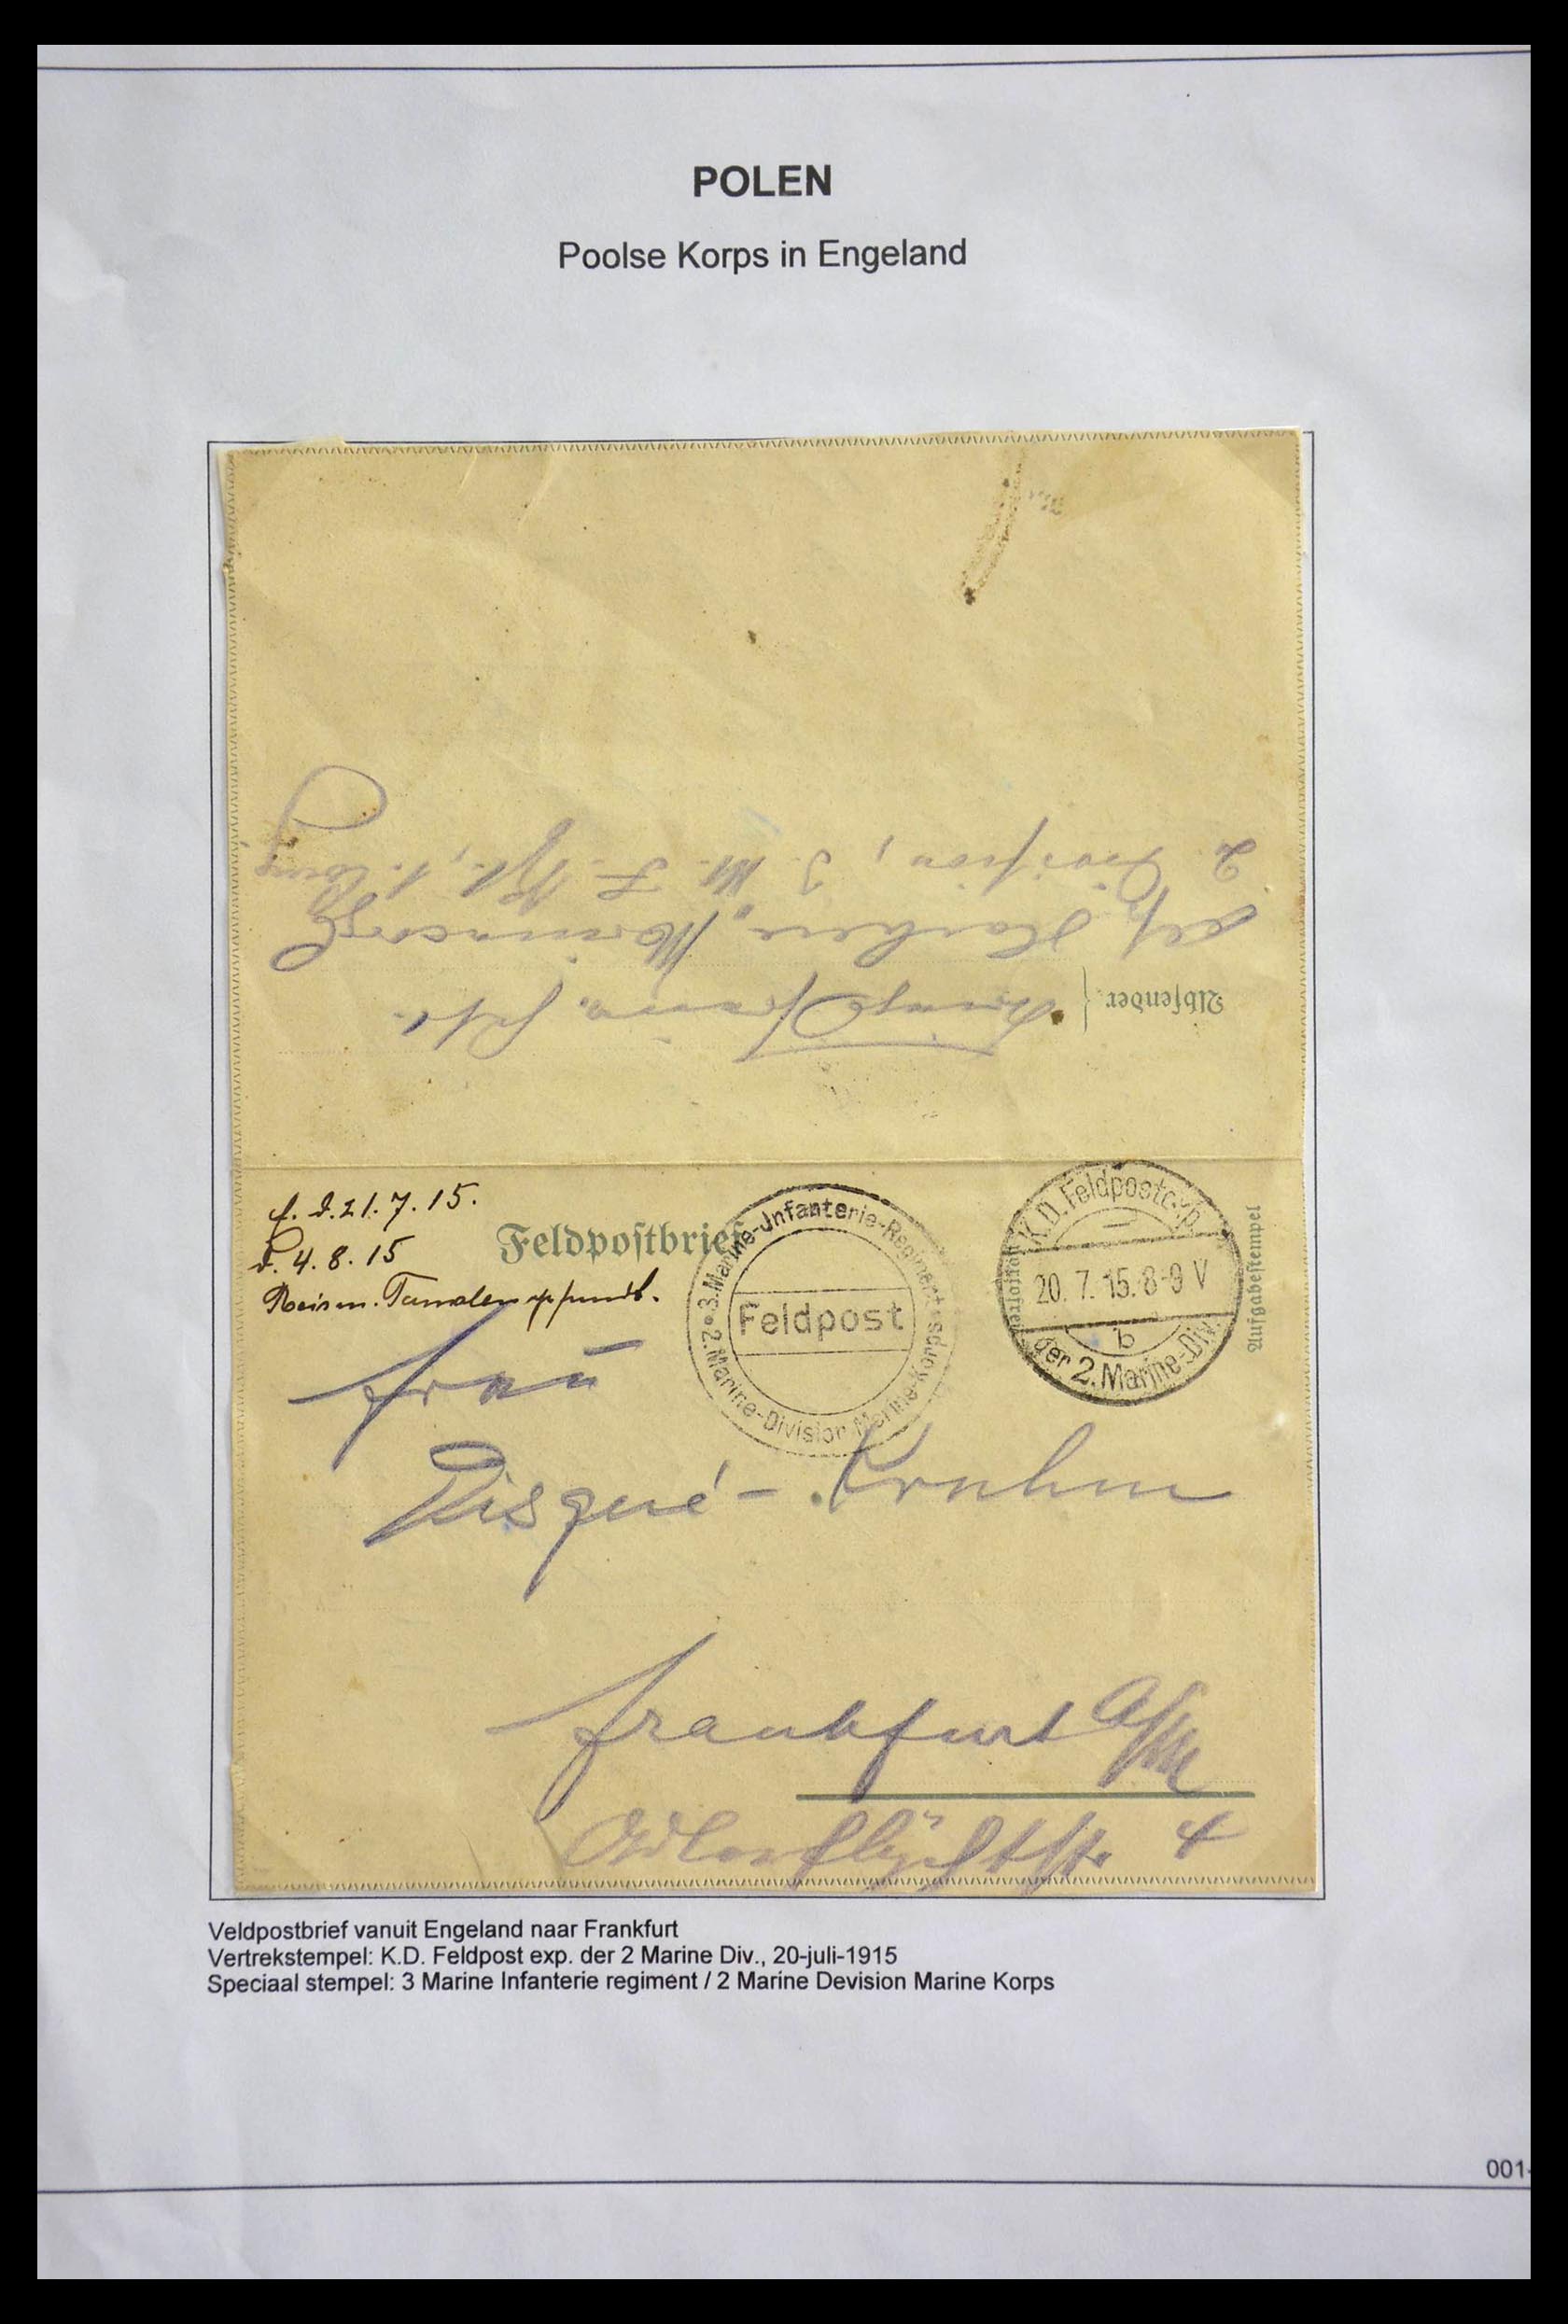 POLEN
Poolse Korps in Engeland
Absender
2. Division, 3. M.
f. d. 21. 7. 15.
d. 4. 8. 15
Feldpostbrief
3. Marine-Infanterie-Regiment
Feldpost
2. Marine-Division Marine-Korps
K.D. Feldpostexp.
20. 7. 15. 8-9 V
b
der 2. Marine-Div.
Aufgabestempel
Portofrei
Frau
Disqué - Krahm
Frankfurt a/M
Adlerflychtstr. 4
Veldpostbrief vanuit Engeland naar Frankfurt
Vertrekstempel: K.D. Feldpost exp. der 2 Marine Div., 20-juli-1915
Speciaal stempel: 3 Marine Infanterie regiment / 2 Marine Devision Marine Korps
001-